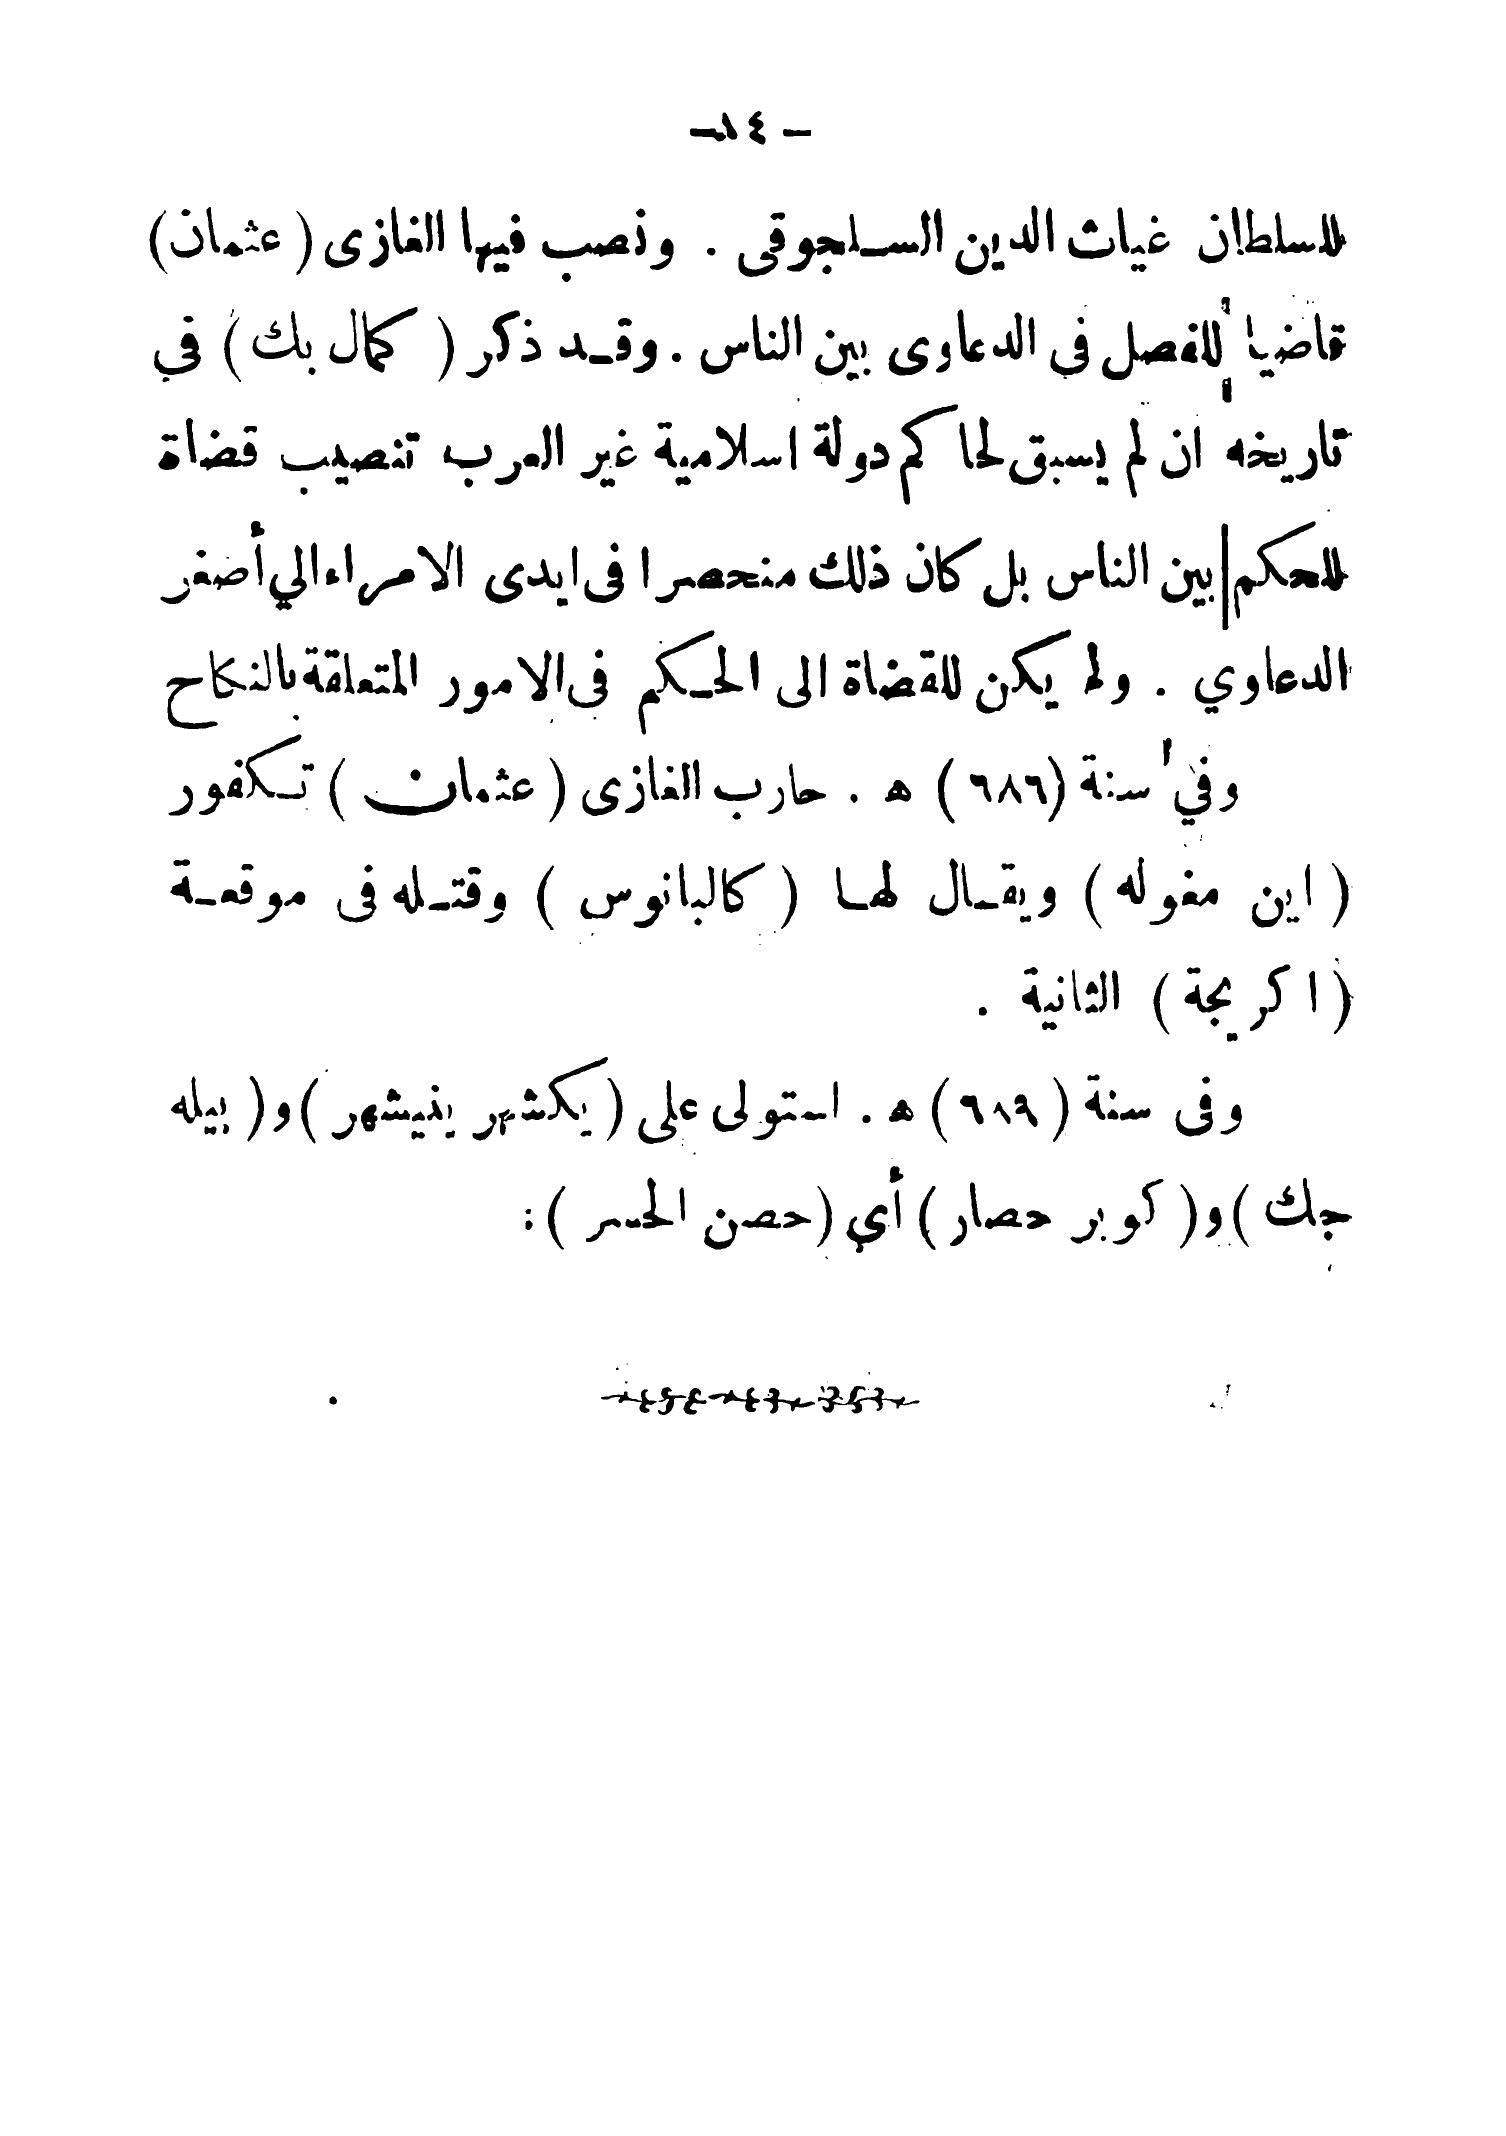 — ١٤ —
للسلطان غياث الدين السلجوقى . ونصب فيها الغازى ( عثمان )
قاضيا للفصل فى الدعاوى بين الناس . وقد ذكر ( كمال بك ) في
تاريخه ان لم يسبق لحاكم دولة اسلامية غير العرب تنصيب قضاة
للحكم بين الناس بل كان ذلك منحصرا فى ايدى الامراء الي أصغر
الدعاوي . ولم يكن للقضاة الى الحكم فى الامور المتعلقة بالنكاح
وفي سنة (٦٨٦) ھ . حارب الغازى ( عثمان ) تكفور
( اين مغوله ) ويقال لها ( كالبانوس ) وقتله فى موقعة
( اكريجة ) الثانية .
وفى سنة ( ٦٨٩ ) ھ . استولى على ( يكشهر ينيشهر ) و ( بيله
جك ) و ( كوبر حصار ) أي ( حصن الجسر ) :